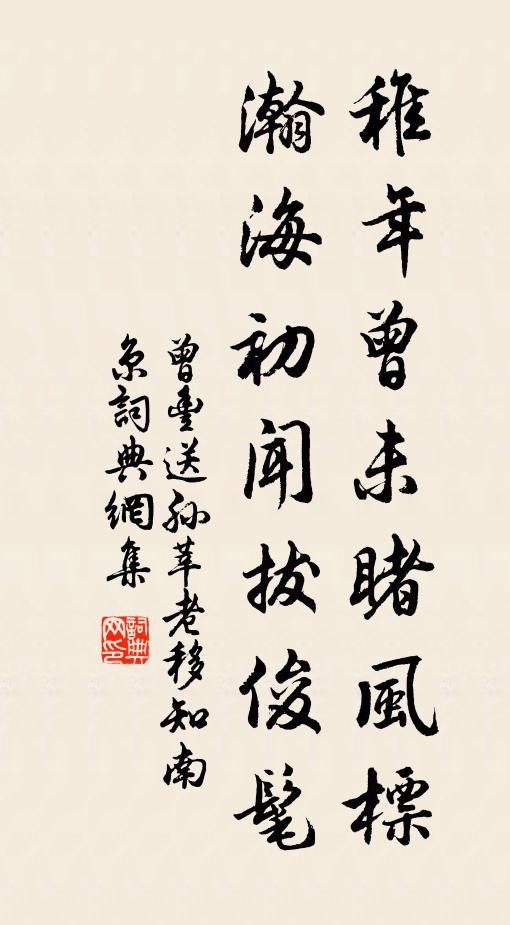 稚年曾未睹風標
瀚海初聞拔俊髦
曾豐送孫莘老移知南
京詞典網集
詞典网印